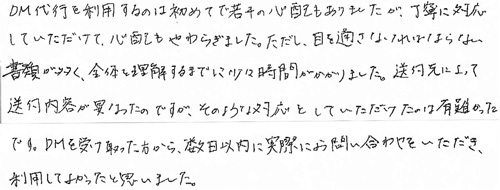 DM代行を利用するのは初めてで若干の心配もありましたが、丁寧に対応
していただけて、心配もやわらぎました。ただし、目を通さなければならない
書類が多く、全体を理解するまでに少しは時間がかかりました。送付先によって
送付内容が異なったのですが、そのような対応をしていただけたのは有難かった
です。DMを受け取った方から、数日以内に実際にお問い合わせをいただき、
利用してよかったと思いました。